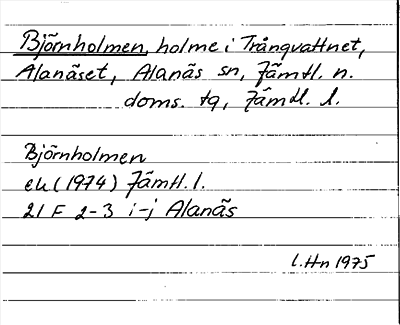 Björnholmen, holme i Trångvattnet,
Alanäset, Alanäs sn, Jämtl. n.
doms. tg, Jämtl. l.
Björnholmen
ek (1974) Jämtl. l.
21 F 2-3 i-j Alanäs
l. Hn 1975